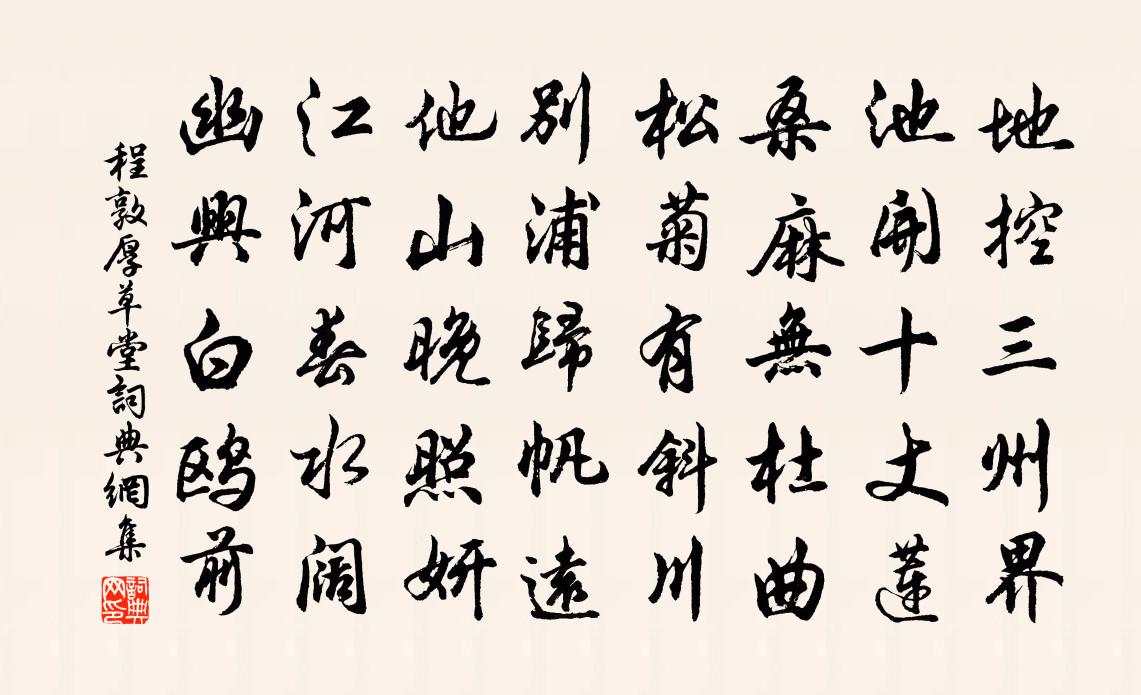 地控三州界
池開十丈蓮
桑麻無杜曲
松菊有斜川
別浦歸帆遠
他山晚照妍
江河春水闊
幽興白鷗前
程敦厚草堂詞典網集
詞典網印